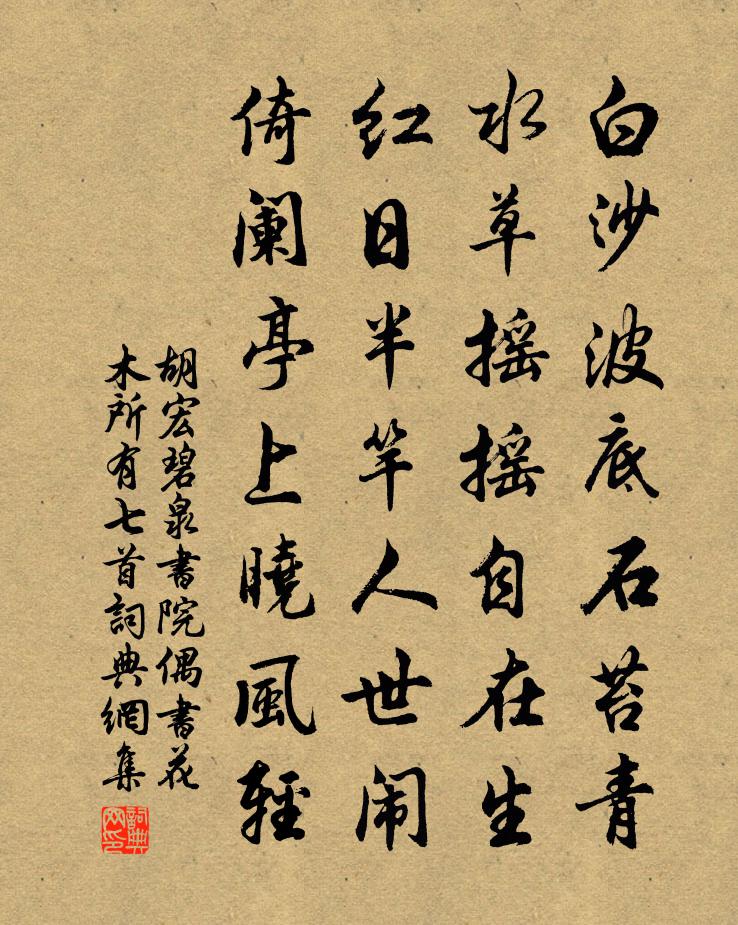 白沙波底石苔青
水草摇摇自在生
红日半竿人世闹
倚阑亭上曉風輕
胡宏碧泉書院偶書花
木所有七首詞典網集
詞典
网印